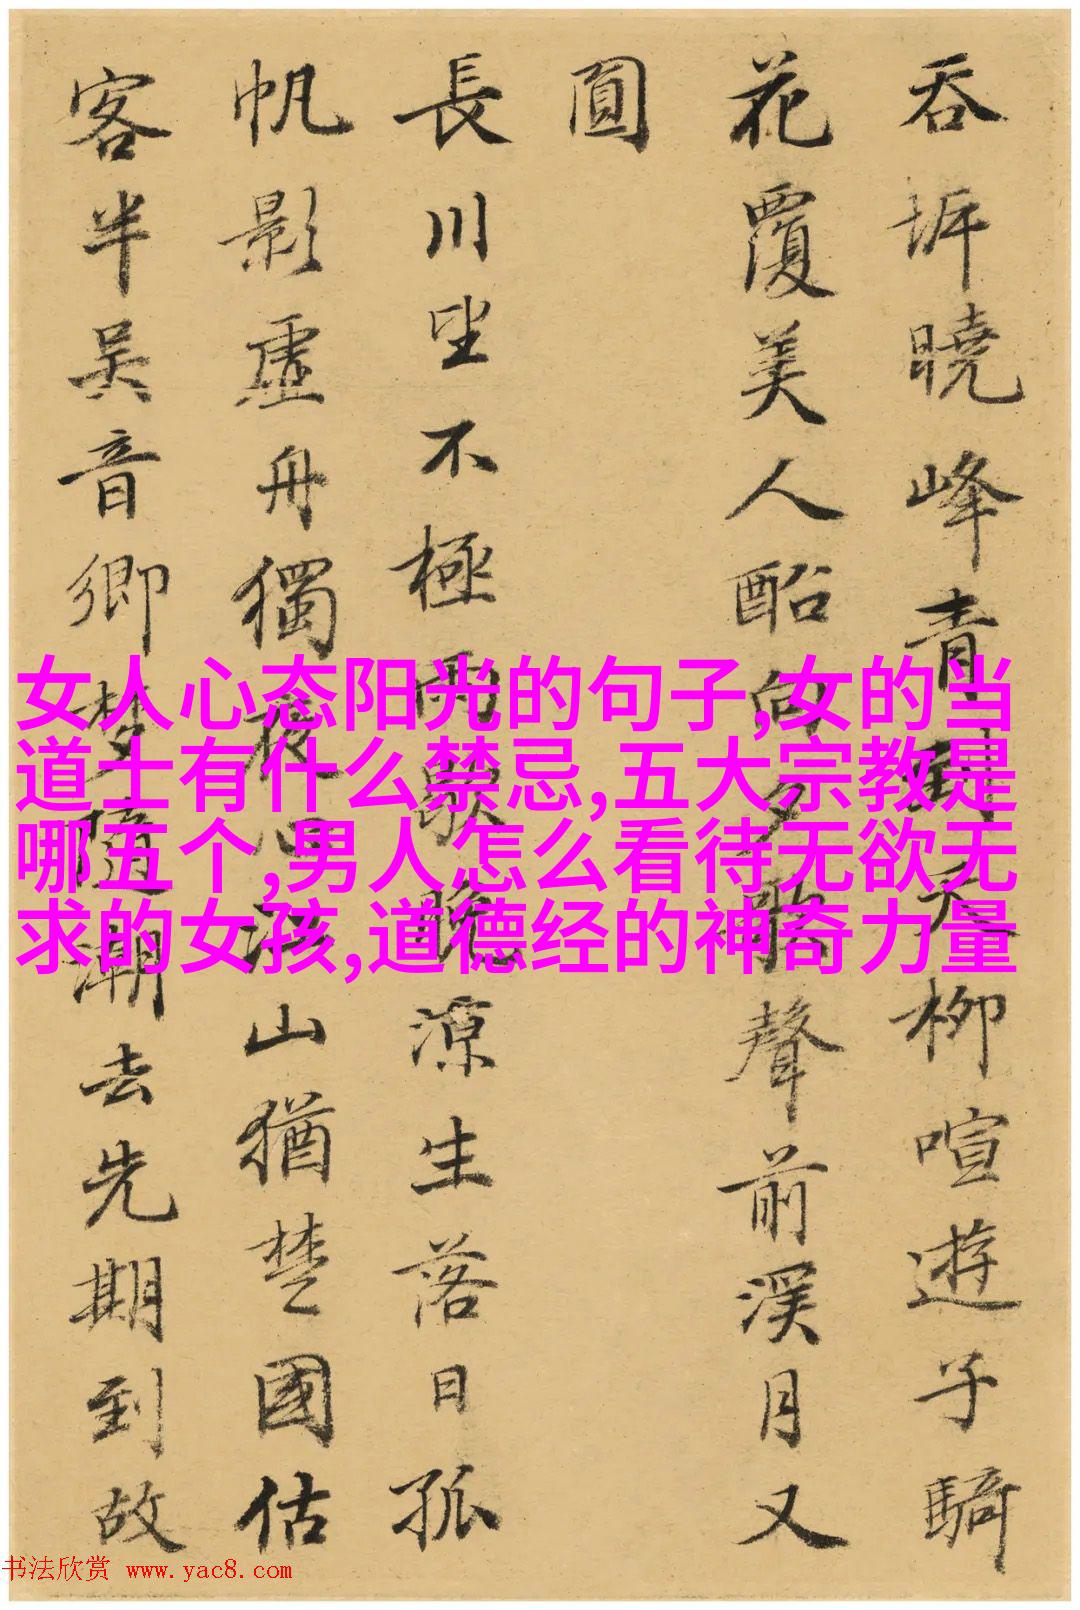 吞坼曉峰青到天柳喧遊子騎
花覆美人船向夕聲前溪月又
圓
長川坐不極雨歇晚涼生落日孤
帆影虛舟獨夜心山猶楚國估
客半吳音鄉梦隨潮去先期到故
女人心态阳光的句子,女的当
道士有什么禁忌,五大宗教是
哪五个,男人怎么看待无欲无
求的女孩,道德经的神奇力量
书法欣赏 www.yac8.com